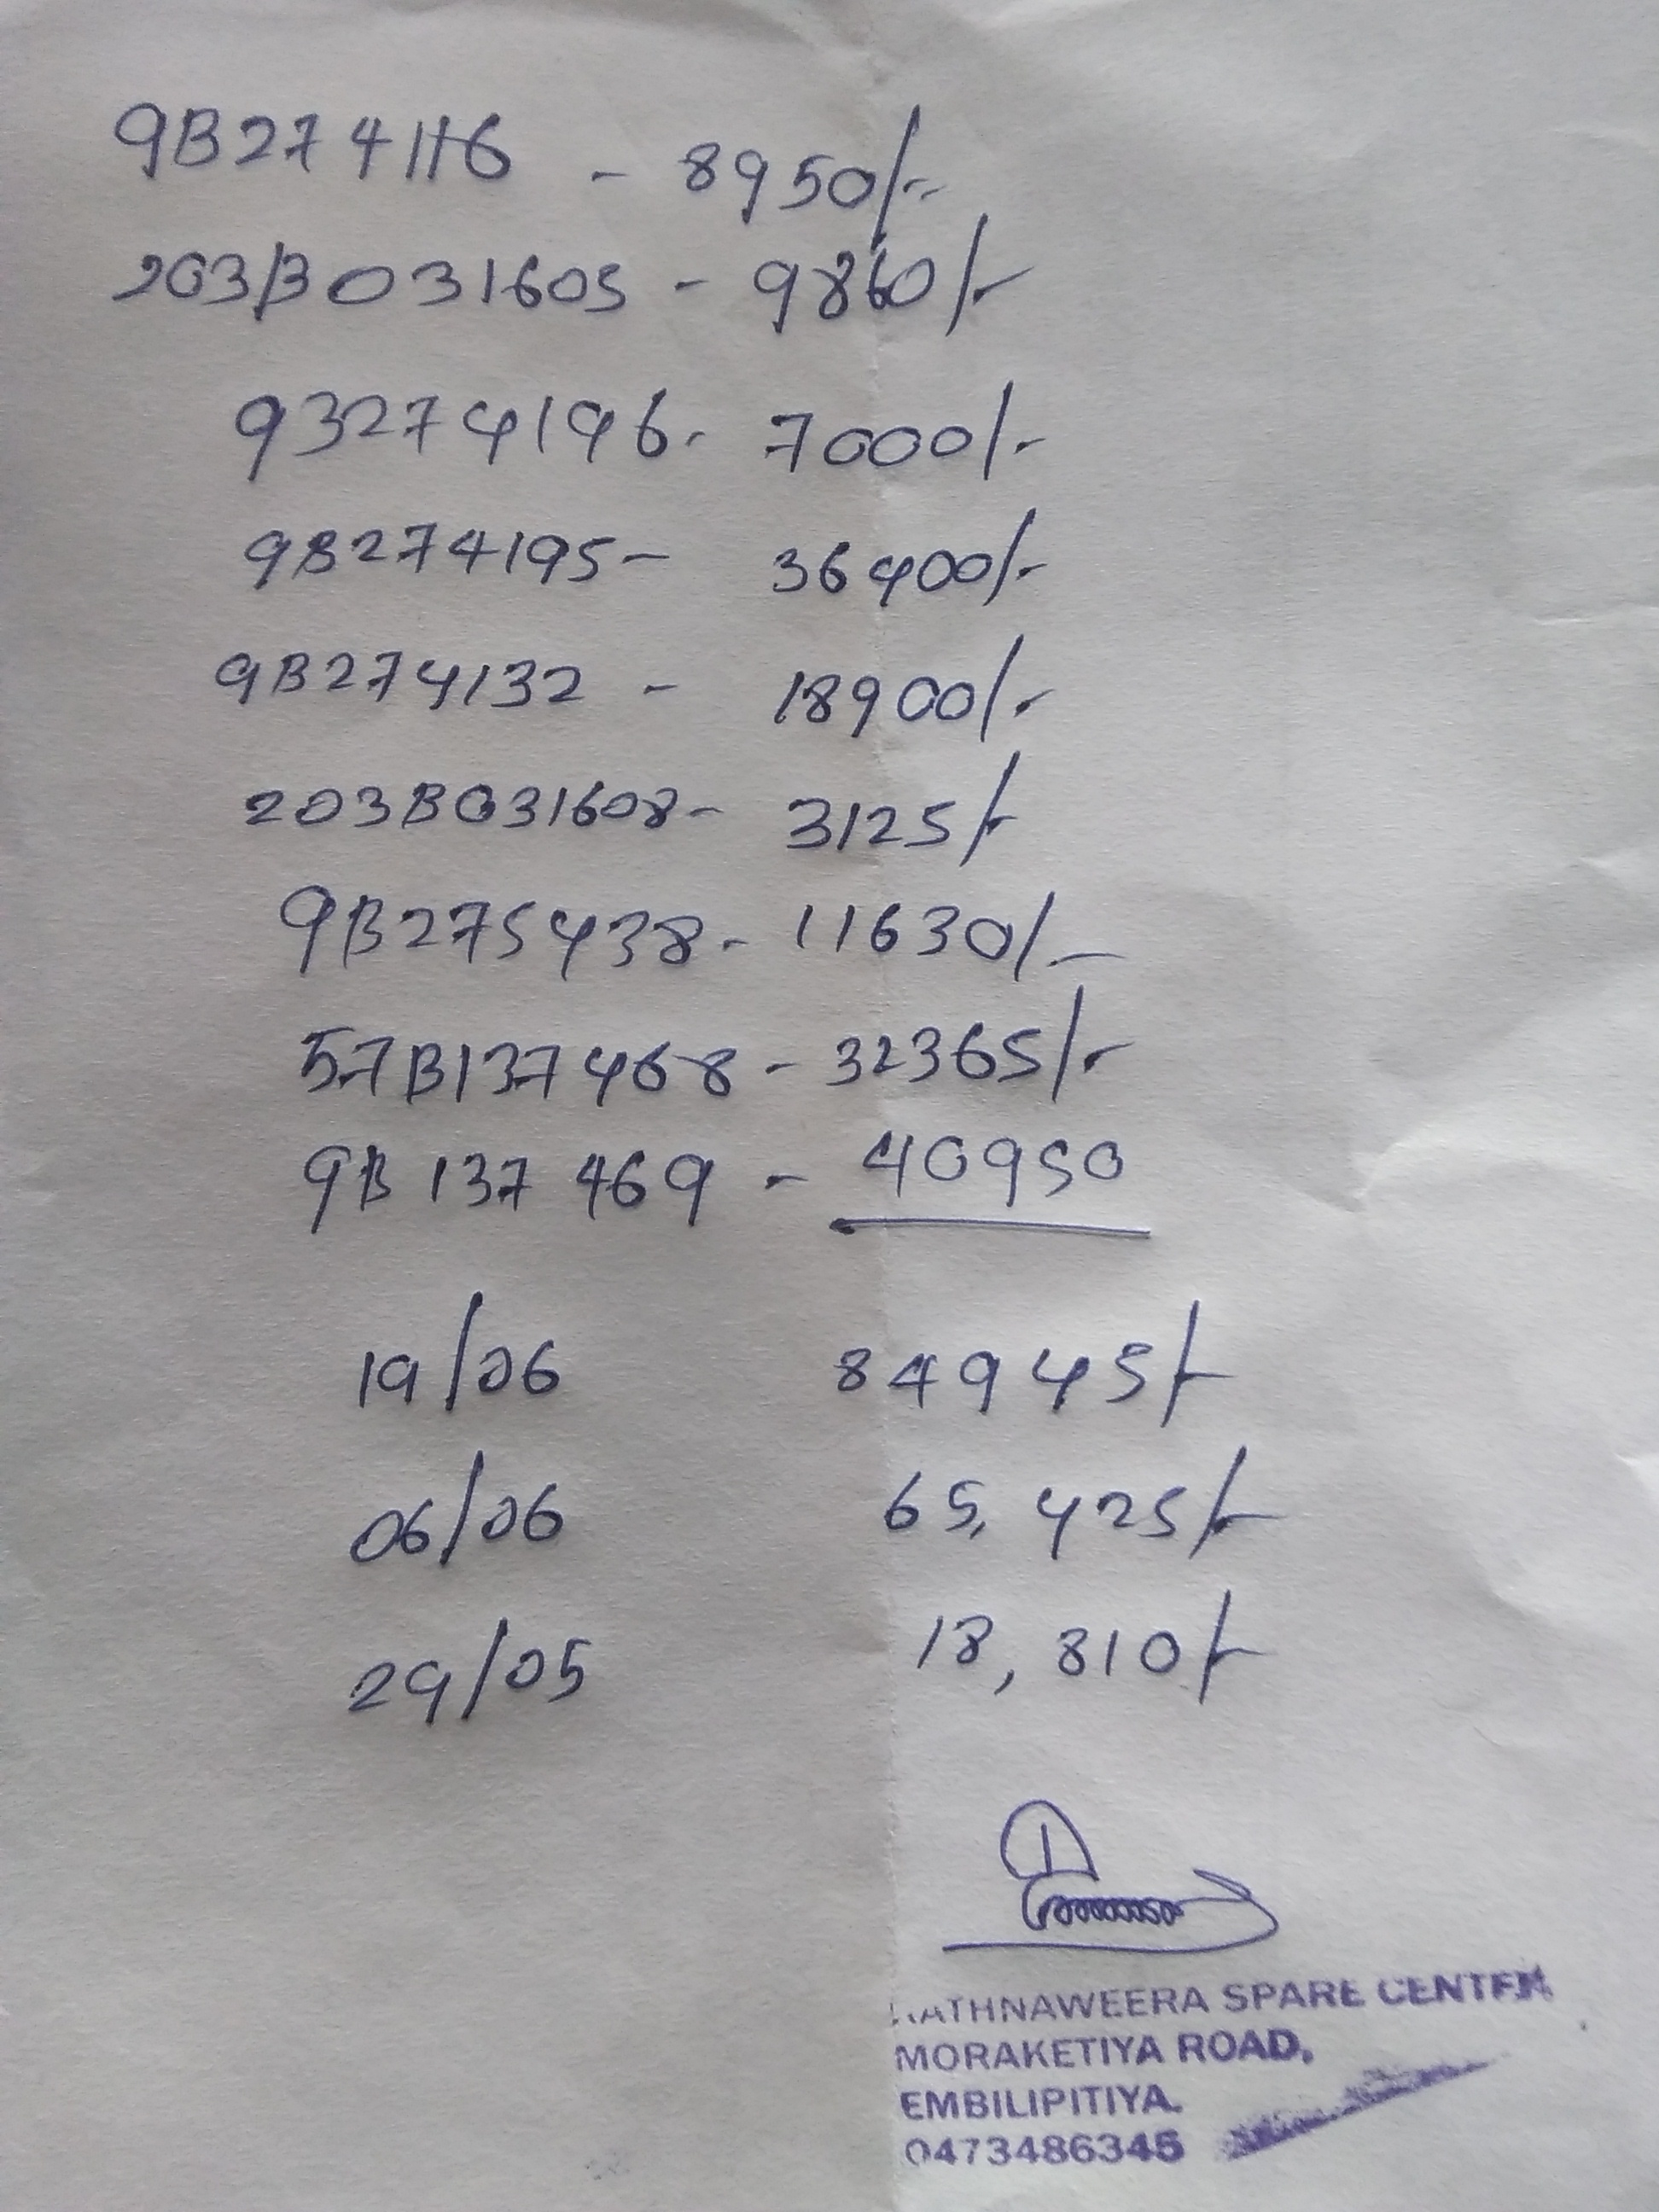 9B274116 - 8950/-
203B031605 - 9860/-
93274196- 7000/-
9B274195- 36400/-
9B274132 - 18900/-
203B031608- 3125/-
9B275438- 11630/-
57B137468 - 32365/-
9B137469 - 40950
19/06 84945/-
06/06 65,425/-
29/05 18,810/-
RATHNAWEERA SPARE CENTER
MORAKETIYA ROAD,
EMBILIPITIYA.
0473486345